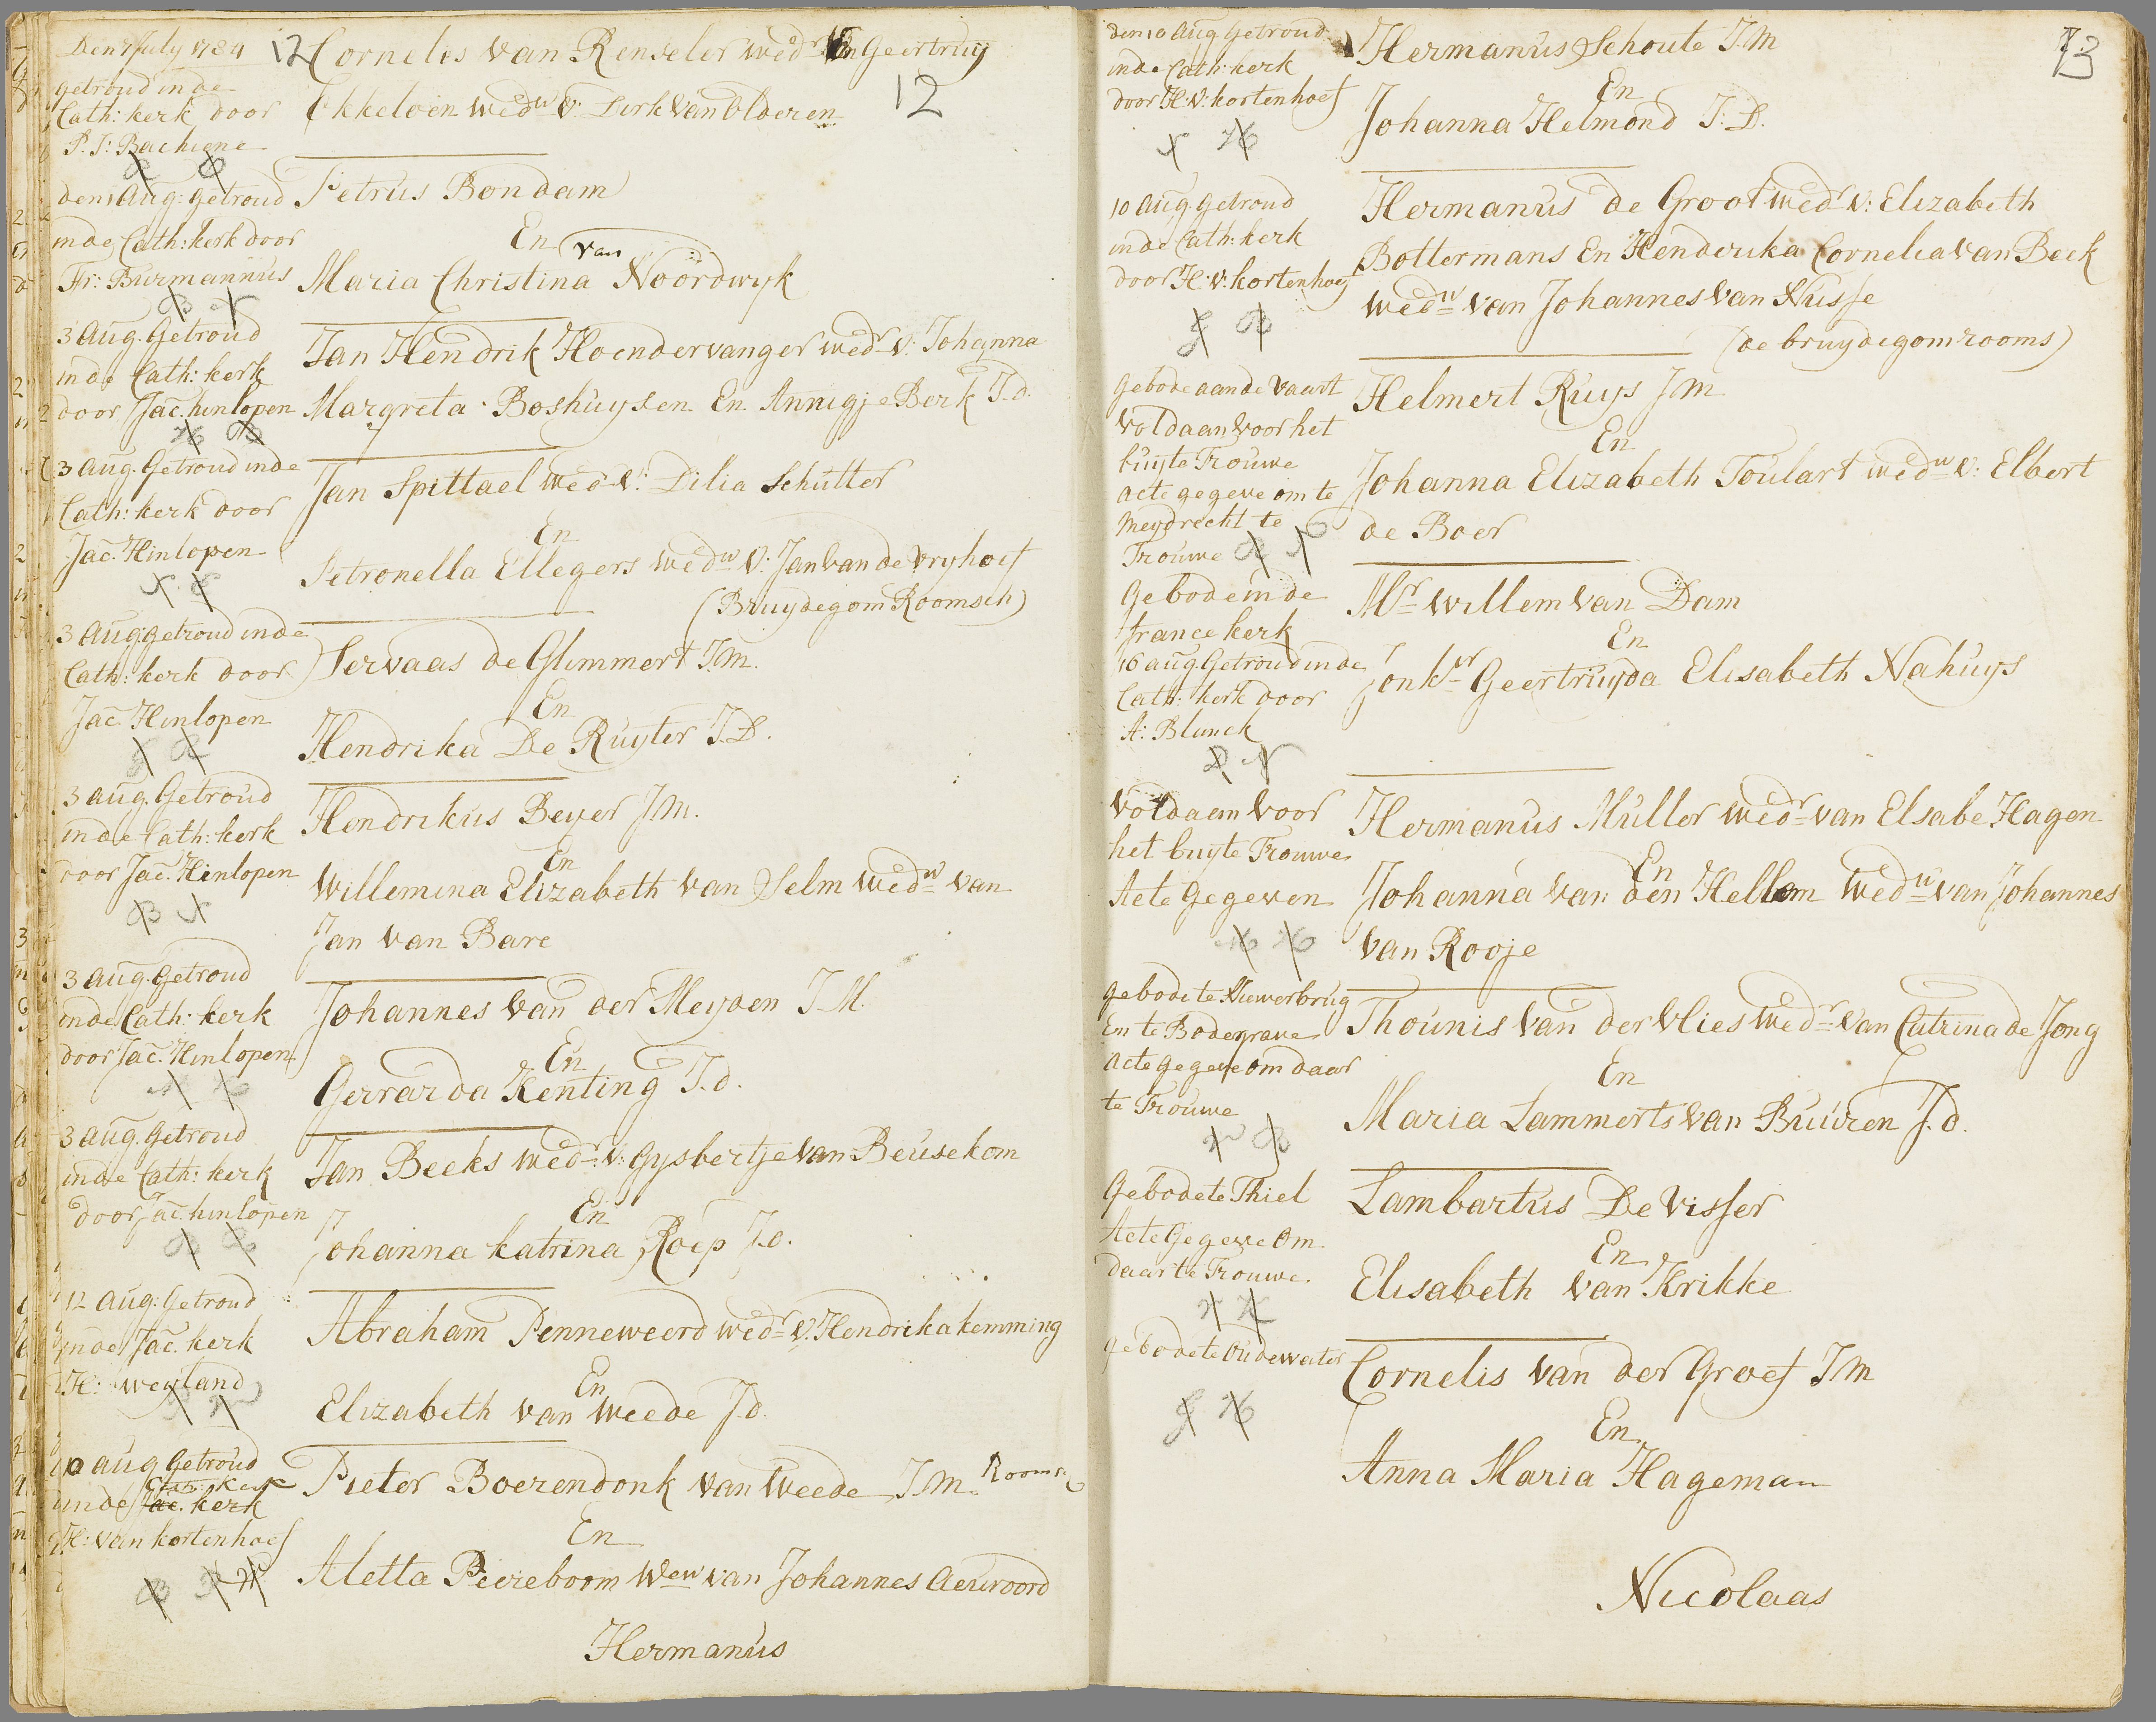 Den 7 July 1784
getroud inde
Cath: kerk door
P. J: Bachiene
12
Cornelis van Renseler wedr van Geertruy
Ekkeloen wedw v: Dirk van Olderen
12
den 1 Aug: getroud
inde Cath: kerk door
Fr: Burmannus
Petrus Bondam
En
van
Maria Christina Noordwyk
3 Aug. Getroud
inde Cath: kerk
door Jac. hinlopen
Jan Hendrik Hoendervanger wedr v: Johanna
Margreta Boshuysen En Annigje Berk J.d.
3 aug. Getroud inde
Cath: kerk door
Jac. Hinlopen
Jan Spittael wedr v: Dilia Schutter
En
Petronella Ellegers wedw v: Jan van de Vryhoef
(Bruydegom Roomsch)
3 Aug: getroud inde
Cath: kerk door
Jac Hinlopen
Servaas de Glimmert J.m.
En
Hendrika De Ruyter J.D.
3 aug. Getroud
inde Cath: kerk
door Jac. Hinlopen
Hendrikus Beyer J.m.
En
Willemina Elizabeth van Selm wedw van
Jan van Bare
3 aug. Getroud
inde Cath: kerk
door Jac. Hinlopen
Johannes van der Meyden J.M.
En
Gerrarda Kenting J.d.
3 aug. Getroud
inde Cath: kerk
door Jac. hinlopen
Jan Beeks wedr v: Gysbertje van Beusekom
En
Johanna Katrina Roep J.d.
12 aug: Getroud
inde Jac. kerk
H: weyland
Abraham Penneweerd wedr v: Hendrika kemming
En
Elizabeth van Weede J.d.
10 aug Getroud
Cath: kerk
inde Jac. kerk
H: van kortenhoef
Pieter Boerendonk van Weede J.m. Rooms
En
Aletta Peereboom Wew van Johannes Aeuwoord
Hermanus
den 10 Aug Getroud
inde Cath: kerk
door H: v: kortenhoef
Hermanus Schoute J.M
En
Johanna Helmond J:D.
13
10 Aug. Getroud
inde Cath: kerk
door H: v: kortenhoef
Hermanus de Groot wedr v: Elizabeth
Bottermans En Henderika Cornelia van Beek
wedw van Johannes van Nusse
(de bruydegom rooms)
Gebode aan de Vaart
Voldaan voor het
buyte Trouwe
acte gegeve om te
Meydrecht te
Trouwe
Helmert Ruys J.M
En
Johanna Elizabeth Toulart wedw v: Elbert
de Boer
Gebode in de
france kerk
16 aug. Getroud inde
Cath: kerk door
A: Blunck
Mr Willem van Dam
En
Jonkvr Geertruyda Elisabeth Nahuys
Voldaem voor
het buyte Trouwe
Acte Gegeven
Hermanus Muller wedr van Elsabe Hagen
En
Johanna van den Hellem Wedw van Johannes
van Rooje
gebode te Niewerbrug
En te Bodegrave
acte gegeve om daar
te Trouwe
Thounis van der Vlies wedr van Catrina de Jong
En
Maria Lammerts van Buuren J.d.
Gebode te Thiel
Acte Gegeve Om
daar te Trouwe.
Lambartus De Visser
En
Elisabeth van Krikke
gebode te Oudewater
Cornelis van der Groef J.m
En
Anna Maria Hageman
Nicolaas